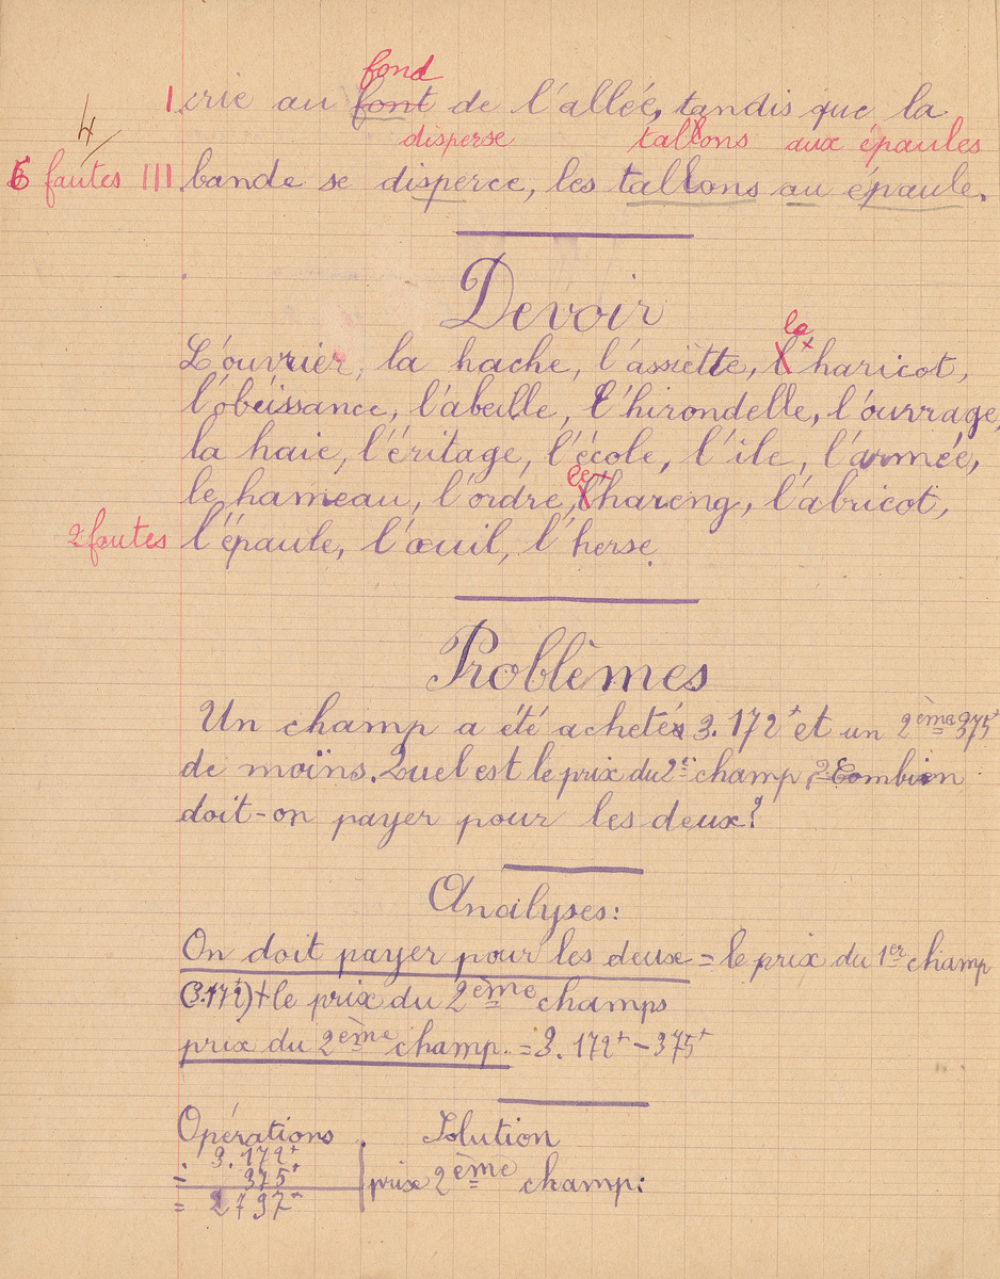 fond
I crie au font de l'allée, tandis que la
4
disperse tallons aux épaules
6 fautes III bande se disperce, les tallons au épaule.
Devoir
la
L'ouvrier, la hache, l'assiette, l'haricot,
l'obéissance, l'abeille, l'hirondelle, l'ouvrage,
la haie, l'éritage, l'école, l'ile, l'armée,
le
le hameau, l'ordre, l'hareng, l'abricot,
2 fautes l'épaule, l'œuil, l'herse.
Problèmes
Un champ a été acheté 3.172f et un 2ème 375f
de moins. Quel est le prix du 2e champ, 2 Combien
doit-on payer pour les deux?
Analyses:
On doit payer pour les deux = le prix du 1er champ
(3.172f) + le prix du 2ème champs
prix du 2ème champ. = 3.172f - 375f
Opérations. Solution
3.172f
- 375f prix 2ème champ:
= 2797f